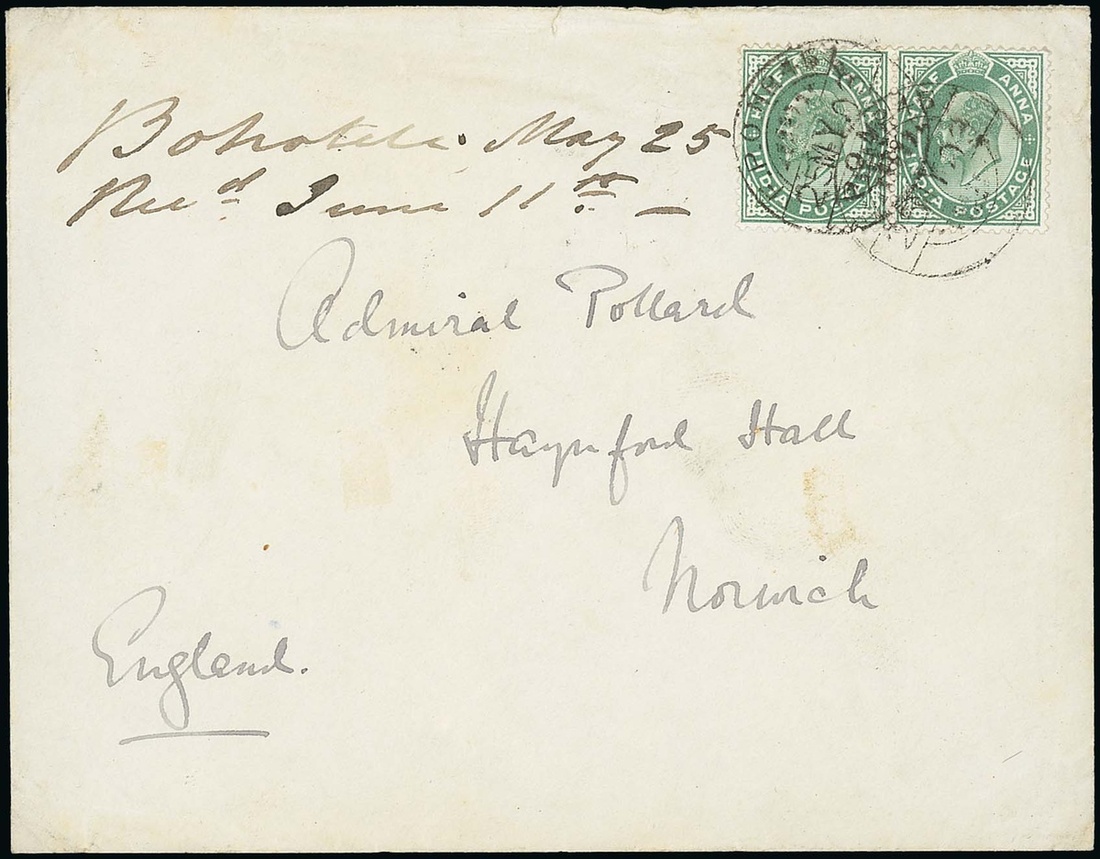 Bohotele. May 25
Rec.d June 11th. —
HALF ANNA
INDIA POSTAGE
HALF ANNA
INDIA POSTAGE
25 MY
Admiral Pollard
Haynford Hall
Norwich
England.